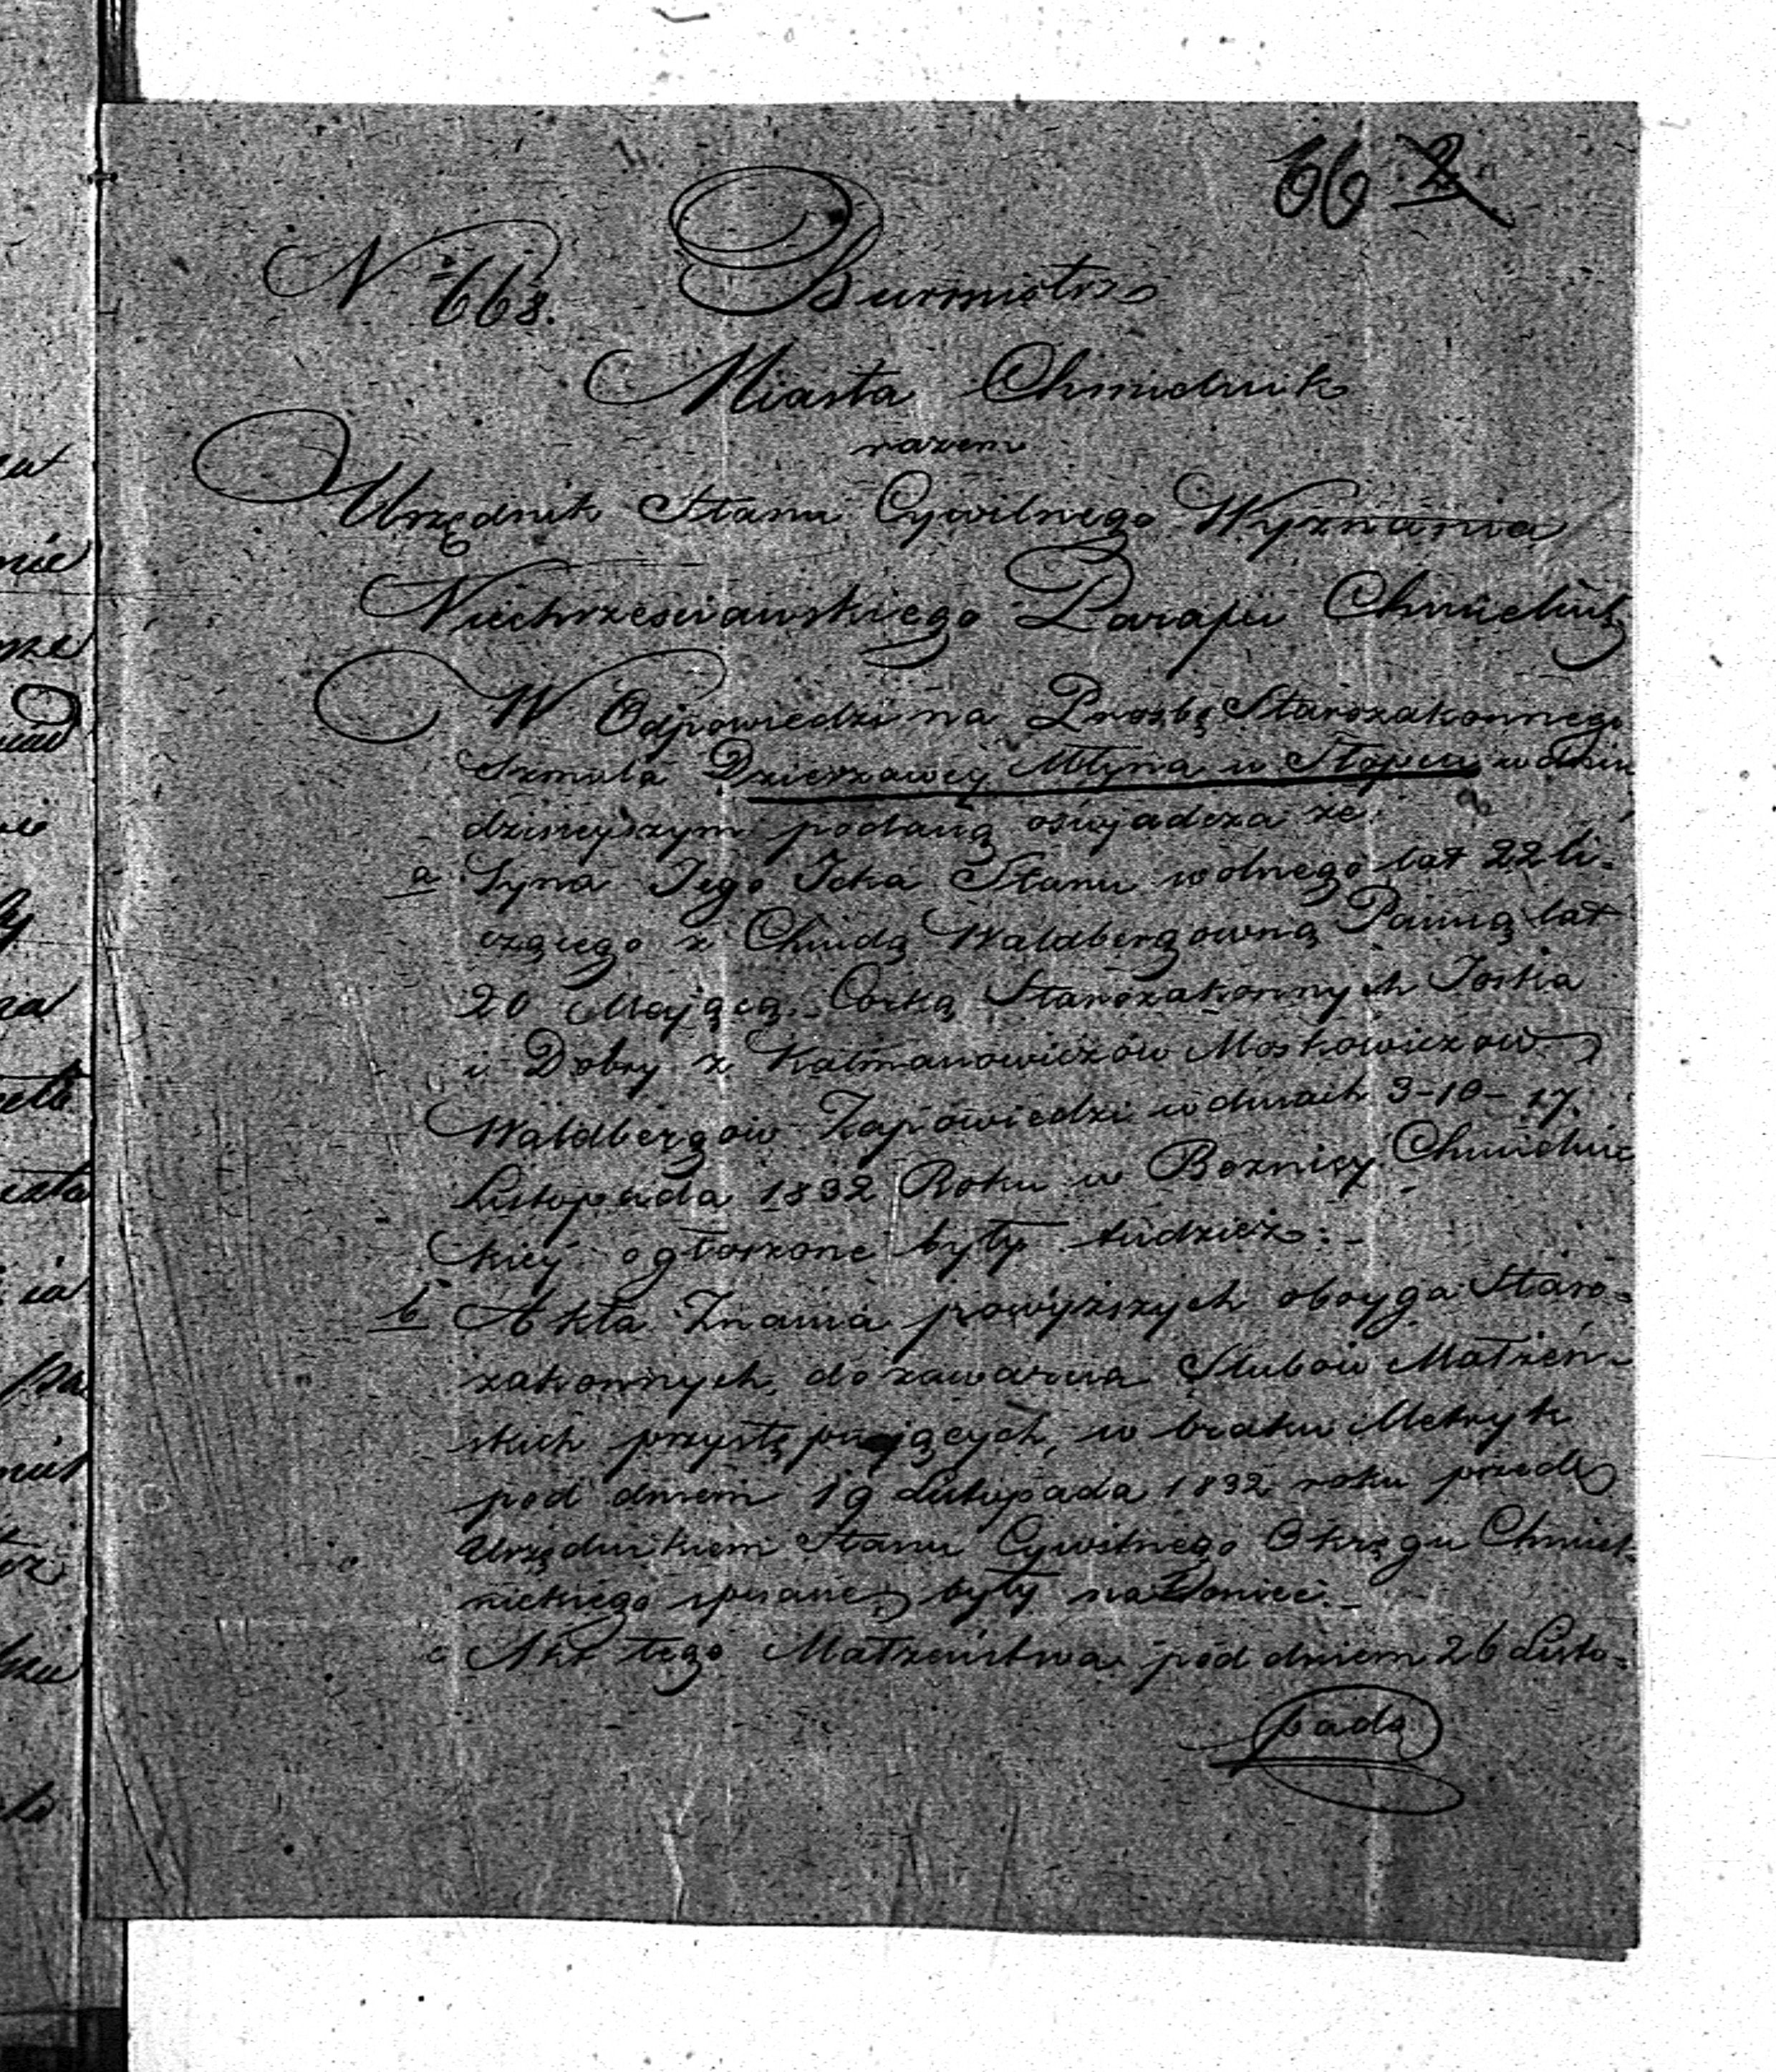 66 2
N 668. Burmistrz
Miasta Chmielnik
razem
Urzędnik Stanu Cywilnego Wyznania
Niechrześciańskiego Parafii Chmielnik
W Odpowiedzi na Prożbę Starozakonnego
Szmula Dzierzawcy Młyna w Stopcu w dniu
dzisieyszym podaną oświadcza że
a Syna Jego Icka Stanu wolnego lat 22 li-
czącego z Chaidą Waldbergowną Panną lat
20 Mającą Corką Starozakonnych Joska
i Dobry z Kalmanowiczów Moskowiczow
Waldbergow Zapowiedzi w dniach 3-10-17.
Listopada 1832 Roku w Boznicy Chmielnic
kiey ogłoszone były tudzież:-
b Akta Znania powyższych oboyga Staro-
zakonnych, do zawarcia Slubow Małżeń-
skich przystępujących, w braku Metryk
pod dniem 19 Listopada 1832 roku przed
Urzędnikiem Stanu Cywilnego Okręgu Chmiel-
nickiego spisane były
c Akt tego Małżeństwa pod dniem 26 Listo-
pada